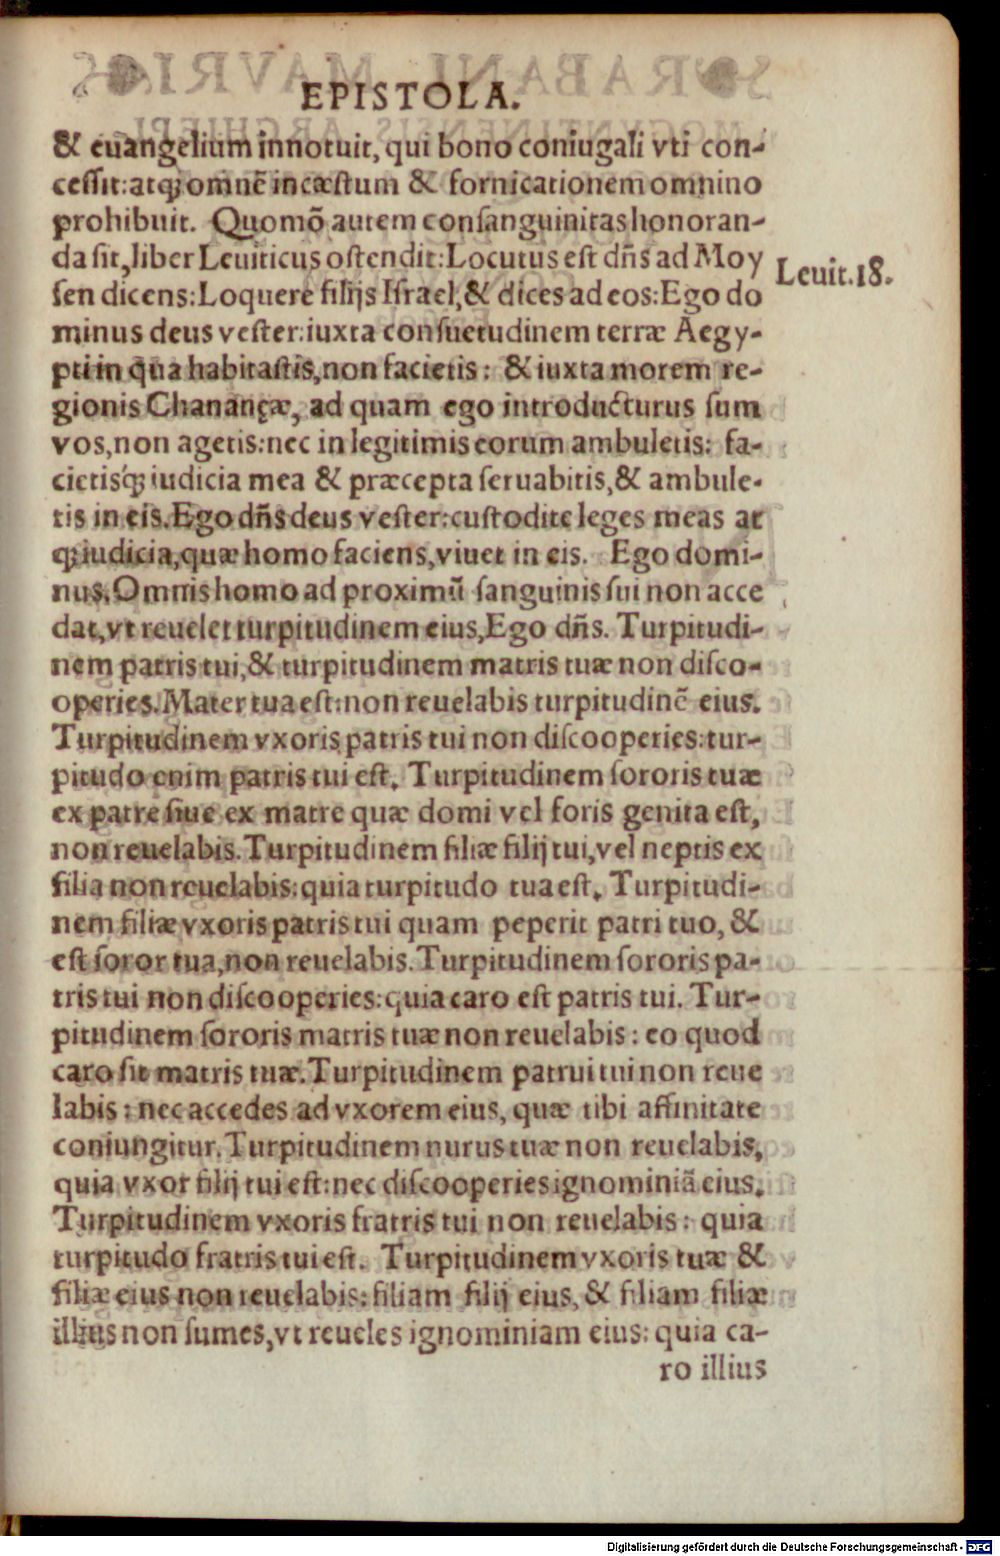 EPISTOLA.
& euangelium innotuit, qui bono coniugali vti con-
cessit: atq; omnē incæstum & fornicationem omnino
prohibuit. Quomō autem consanguinitas honoran-
da sit, liber Leuiticus ostendit: Locutus est dñs ad Moy
Leuit. 18.
sen dicens: Loquere filijs Israel, & dices ad eos: Ego do
minus deus vester: iuxta consuetudinem terræ Aegy-
pti in qua habitastis, non facietis: & iuxta morem re-
gionis Chananęæ, ad quam ego introducturus sum
vos, non agetis: nec in legitimis eorum ambuletis: fa-
cietisq́; iudicia mea & præcepta seruabitis, & ambule-
tis in eis. Ego dñs deus vester: custodite leges meas at
q; iudicia, quæ homo faciens, viuet in eis. Ego domi-
nus. Omnis homo ad proximū sanguinis sui non acce
dat, vt reuelet turpitudinem eius, Ego dñs. Turpitudi-
nem patris tui, & turpitudinem matris tuæ non disco-
operies. Mater tua est: non reuelabis turpitudinē eius.
Turpitudinem vxoris patris tui non discooperies: tur-
pitudo enim patris tui est. Turpitudinem sororis tuæ
ex patre siue ex matre quæ domi vel foris genita est,
non reuelabis. Turpitudinem filiæ filij tui, vel neptis ex
filia non reuelabis: quia turpitudo tua est. Turpitudi-
nem filiæ vxoris patris tui quam peperit patri tuo, &
est soror tua, non reuelabis. Turpitudinem sororis pa-
tris tui non discooperies: quia caro est patris tui. Tur-
pitudinem sororis matris tuæ non reuelabis: eo quod
caro sit matris tuæ. Turpitudinem patrui tui non reue
labis: nec accedes ad vxorem eius, quæ tibi affinitate
coniungitur. Turpitudinem nurus tuæ non reuelabis,
quia vxor filij tui est: nec discooperies ignominiā eius.
Turpitudinem vxoris fratris tui non reuelabis: quia
turpitudo fratris tui est. Turpitudinem vxoris tuæ &
filiæ eius non reuelabis: filiam filij eius, & filiam filiæ
illius non sumes, vt reueles ignominiam eius: quia ca-
ro illius
Digitalisierung gefördert durch die Deutsche Forschungsgemeinschaft - DFG